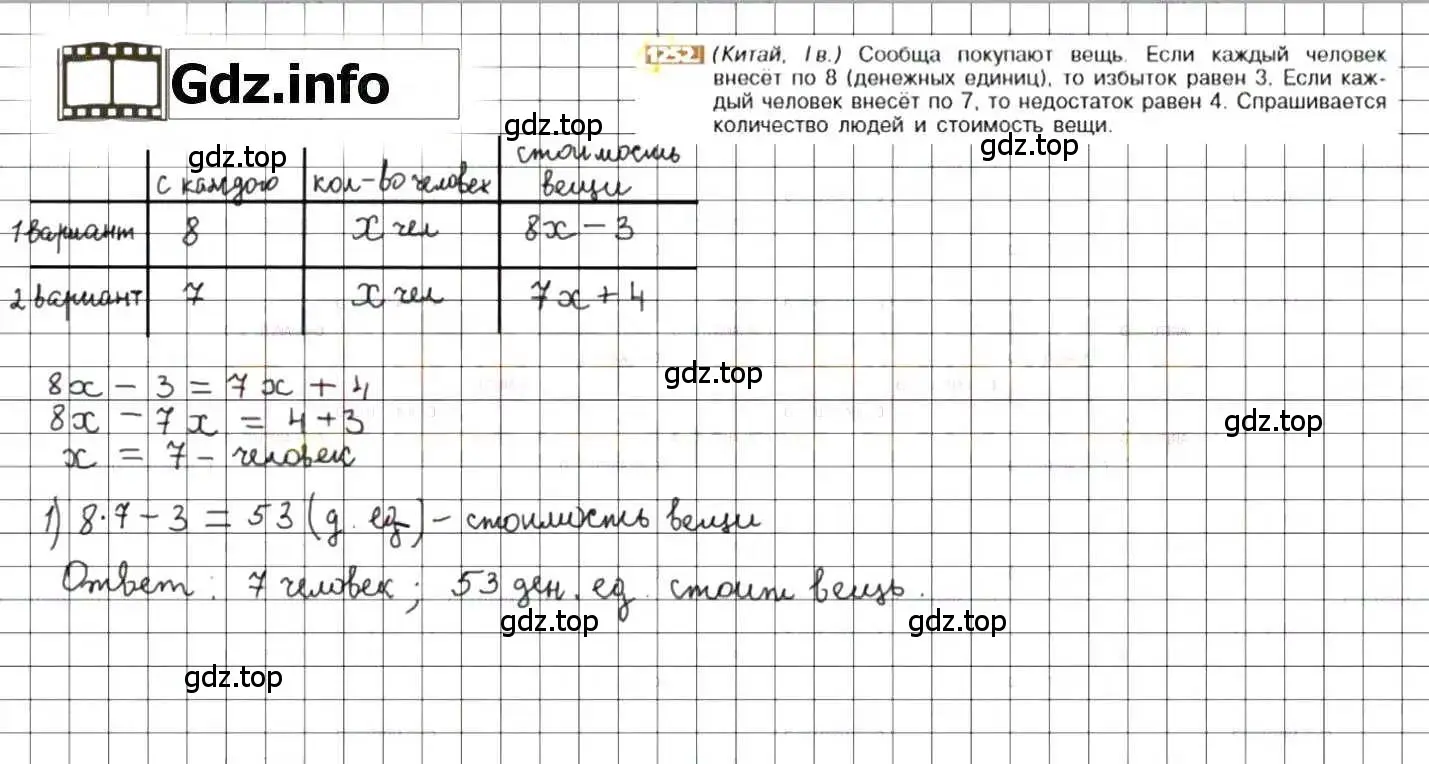 Gdz.info
1252. (Китай, I в.) Сообща покупают вещь. Если каждый человек
внесёт по 8 (денежных единиц), то избыток равен 3. Если каж-
дый человек внесёт по 7, то недостаток равен 4. Спрашивается
количество людей и стоимость вещи.
gdz.top
gdz.top
gdz.top
с каждого кол-во человек стоимость вещи
1 вариант 8 x чел 8x - 3
2 вариант 7 x чел 7x + 4
gdz.top
8x - 3 = 7x + 4
8x - 7x = 4 + 3
gdz.top
x = 7 - человек
1) 8·7 - 3 = 53 (д. ед) - стоимость вещи
Ответ: 7 человек; 53 ден. ед. стоит вещь.
gdz.top
gdz.top
gdz.top